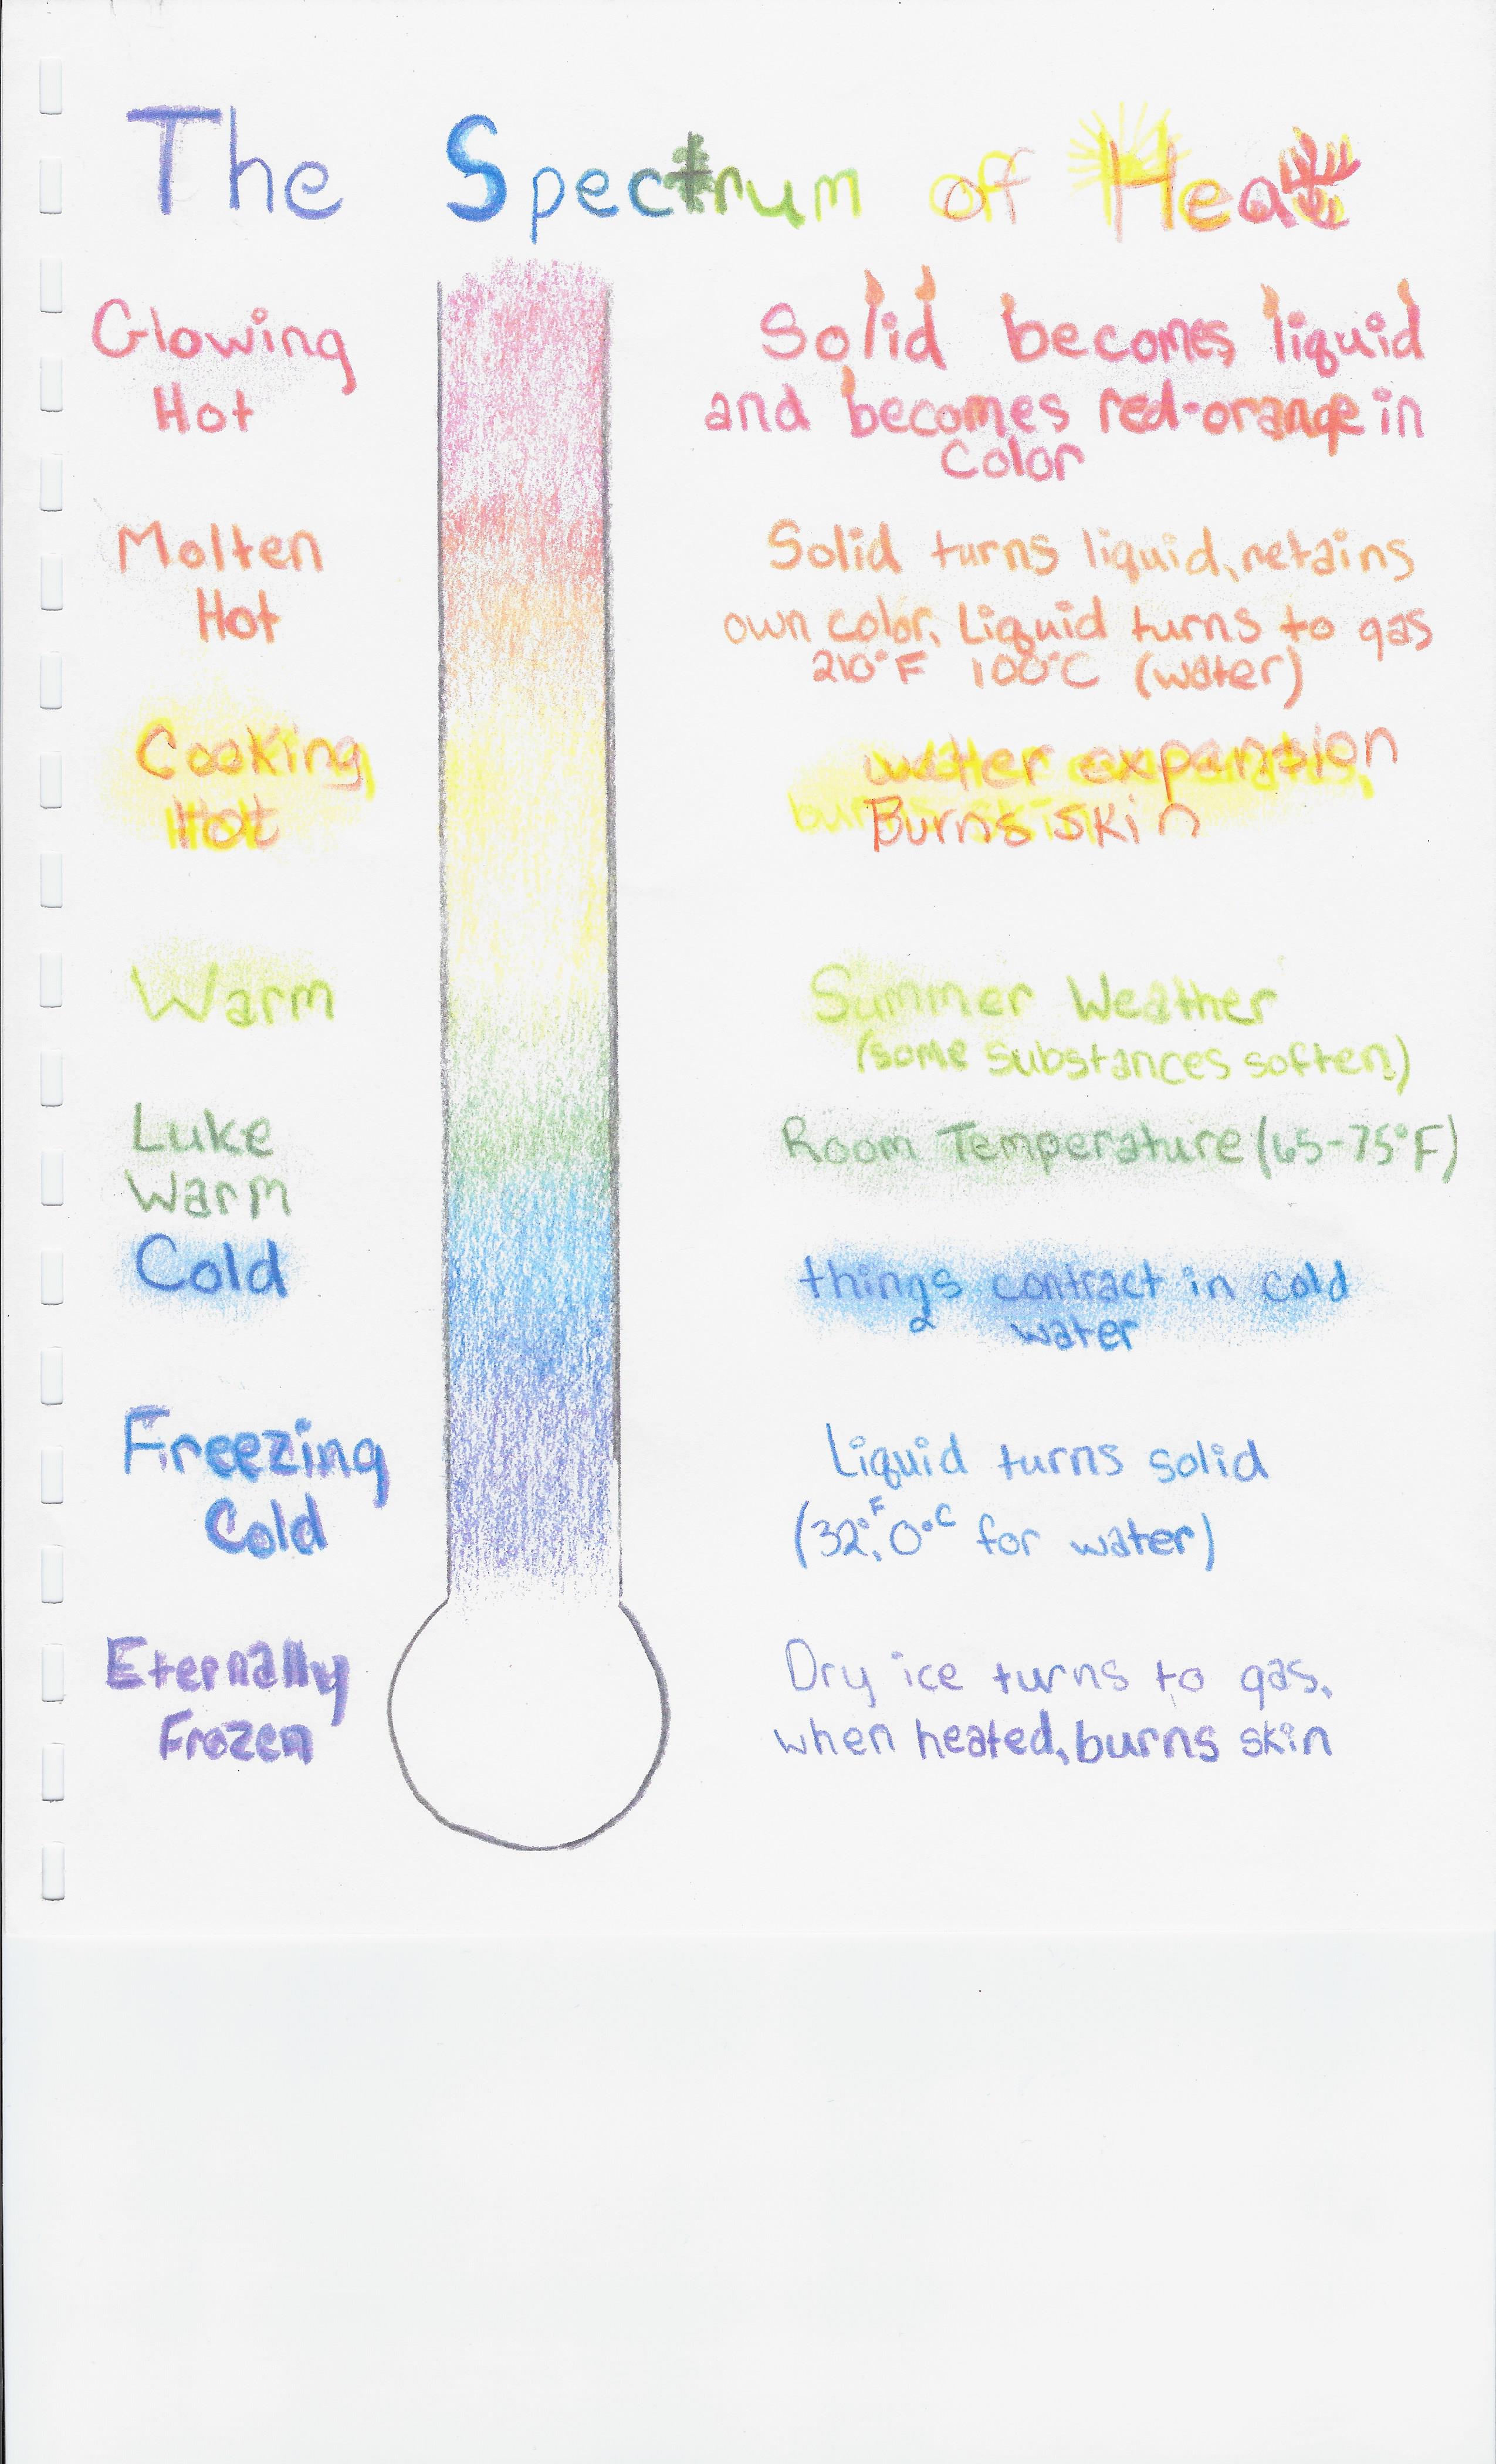 The Spectrum off Heat
Glowing
Hot
Solid becomes liquid
and becomes red-orange in
Color
Molten
Hot
Solid turns liquid, retains
own color. Liquid turns to gas
210°F 100°C (water)
Cooking
Hot
water expansion
Burns skin
Warm
Summer Weather
(some substances soften)
Luke
Warm
Room Temperature (65-75°F)
Cold
things contract in cold
water
Freezing
Cold
Liquid turns solid
(32°F, 0°C for water)
Eternally
Frozen
Dry ice turns to gas,
when heated, burns skin